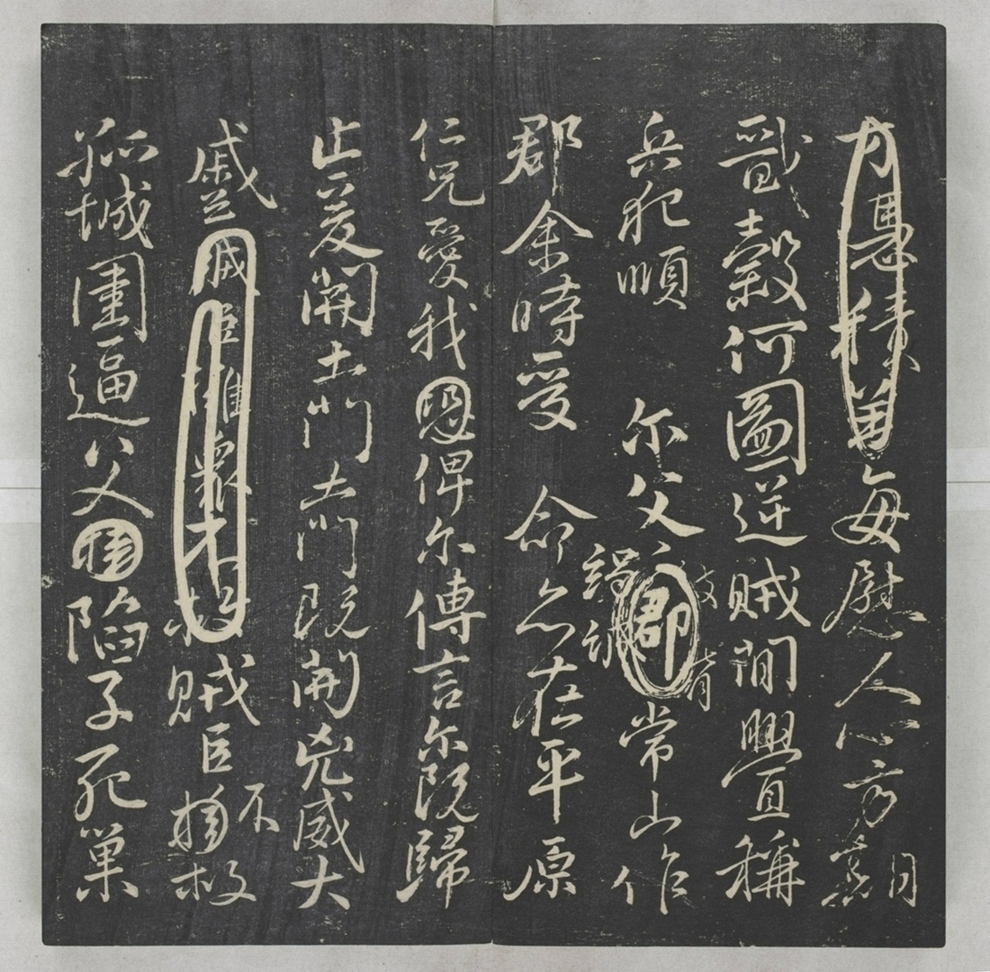 方憑積善每慰人心方期
戩穀何圖逆賊間舋稱
兵犯順 尔父竭誠常山作
郡余時受 命亦在平原
仁兄愛我恐俾尔傳言尔既歸
止爰開土門土門既開兇威大
蹙賊臣擁衆不救賊臣不救
孤城圍逼父陷子死巢